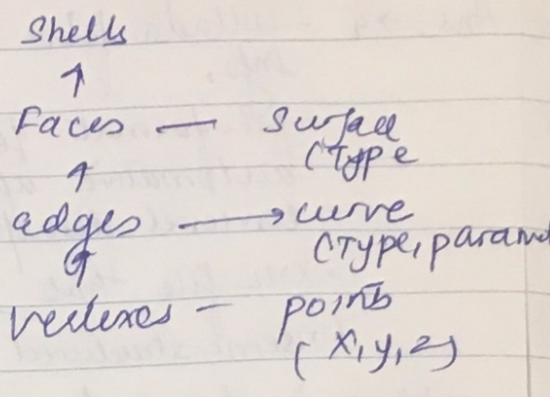 Shells
↑
Faces — Surface
(Type
↑
adges → curve
(Type, param
↑
vertexes — points
(x, y, z)